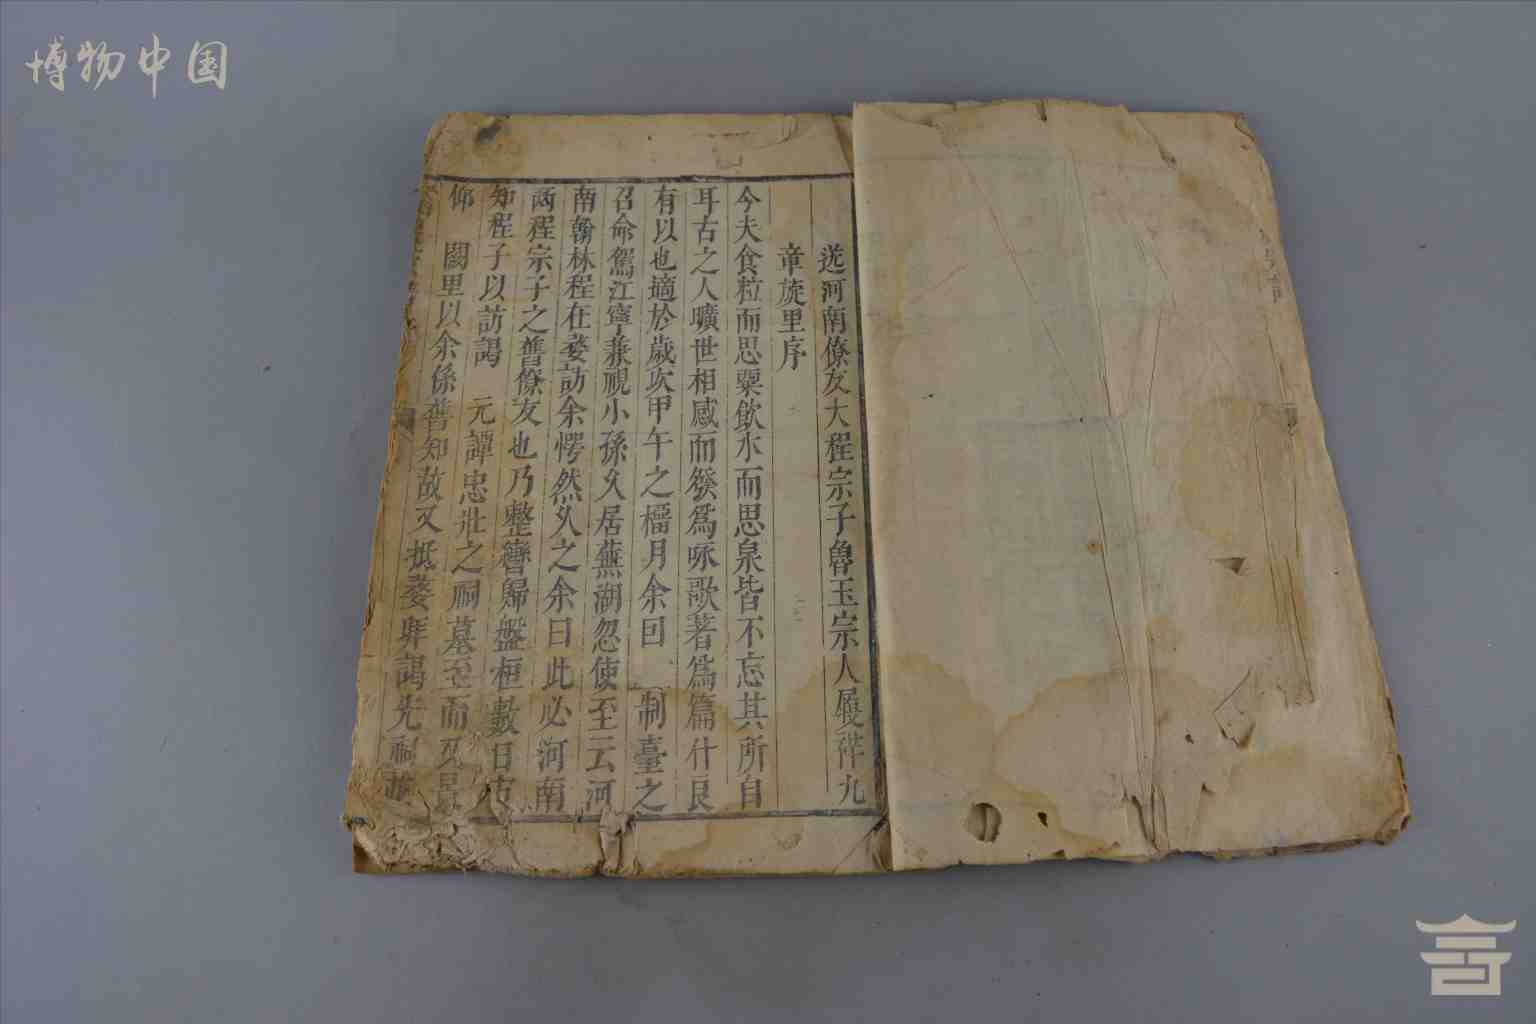 博物中国
送河南僚友大程宗子魯玉宗人履祥九
章旋里序
今夫食粒而思粟飲水而思泉皆不忘其所自
耳古之人曠世相感而發爲咏歌著爲篇什良
有以也適於歲次甲午之榴月余回 制臺之
召命駕江寧兼視小孫久居蕪湖忽使至云河
南翰林程在婺訪余愕然久之余曰此必河南
两程宗子之舊僚友也乃整轡歸盤桓數日方
知程子以訪謁 元譚忠壯之祠墓至而又景
仰 闕里以余係舊知故又抵婺拜謁先祠